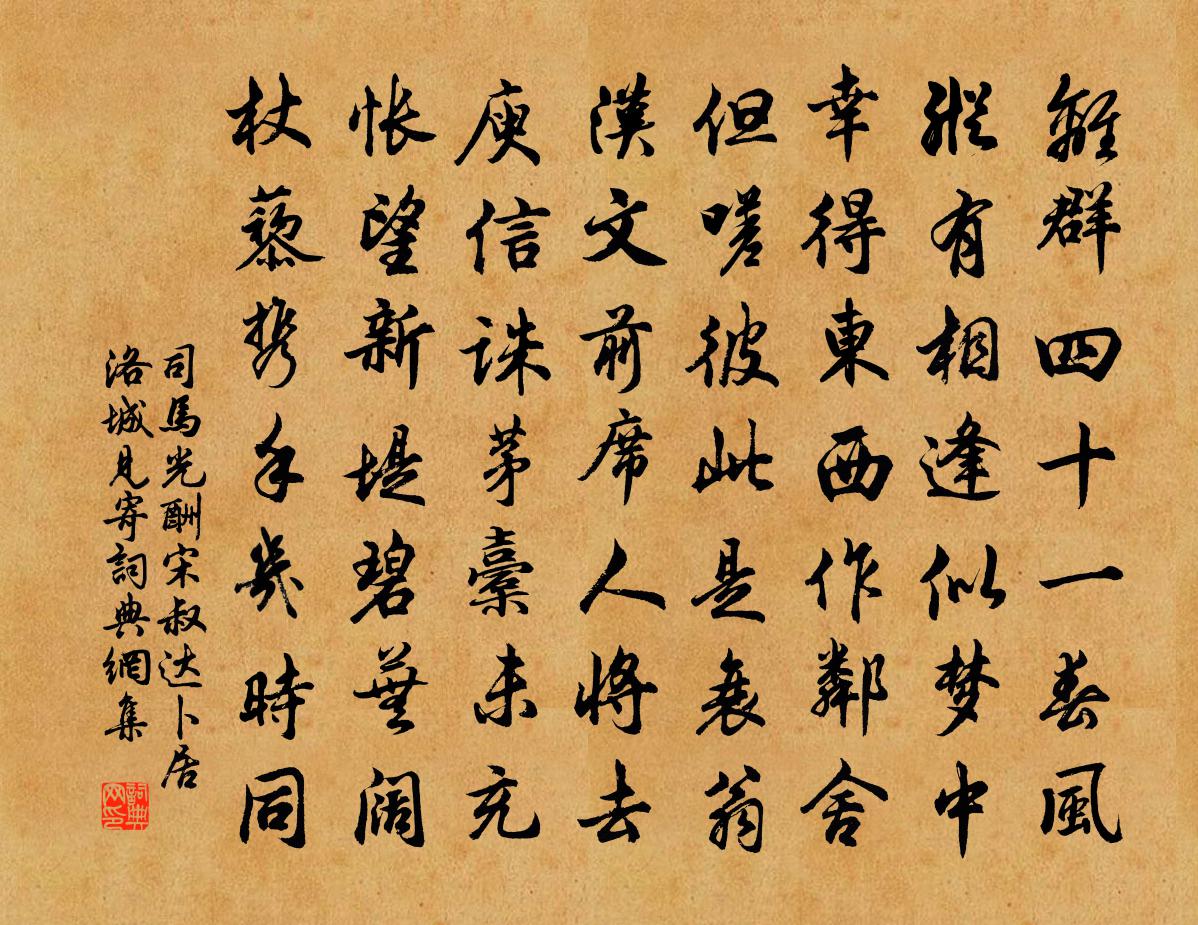 離群四十一春風
縱有相逢似梦中
幸得東西作鄰舍
但嗟彼此是衰翁
漢文前席人將去
庾信誅茅藁未充
怅望新堤碧蕪阔
杖藜携手幾時同
司馬光酬宋叔达卜居
洛城見寄詞典網集
詞典网印